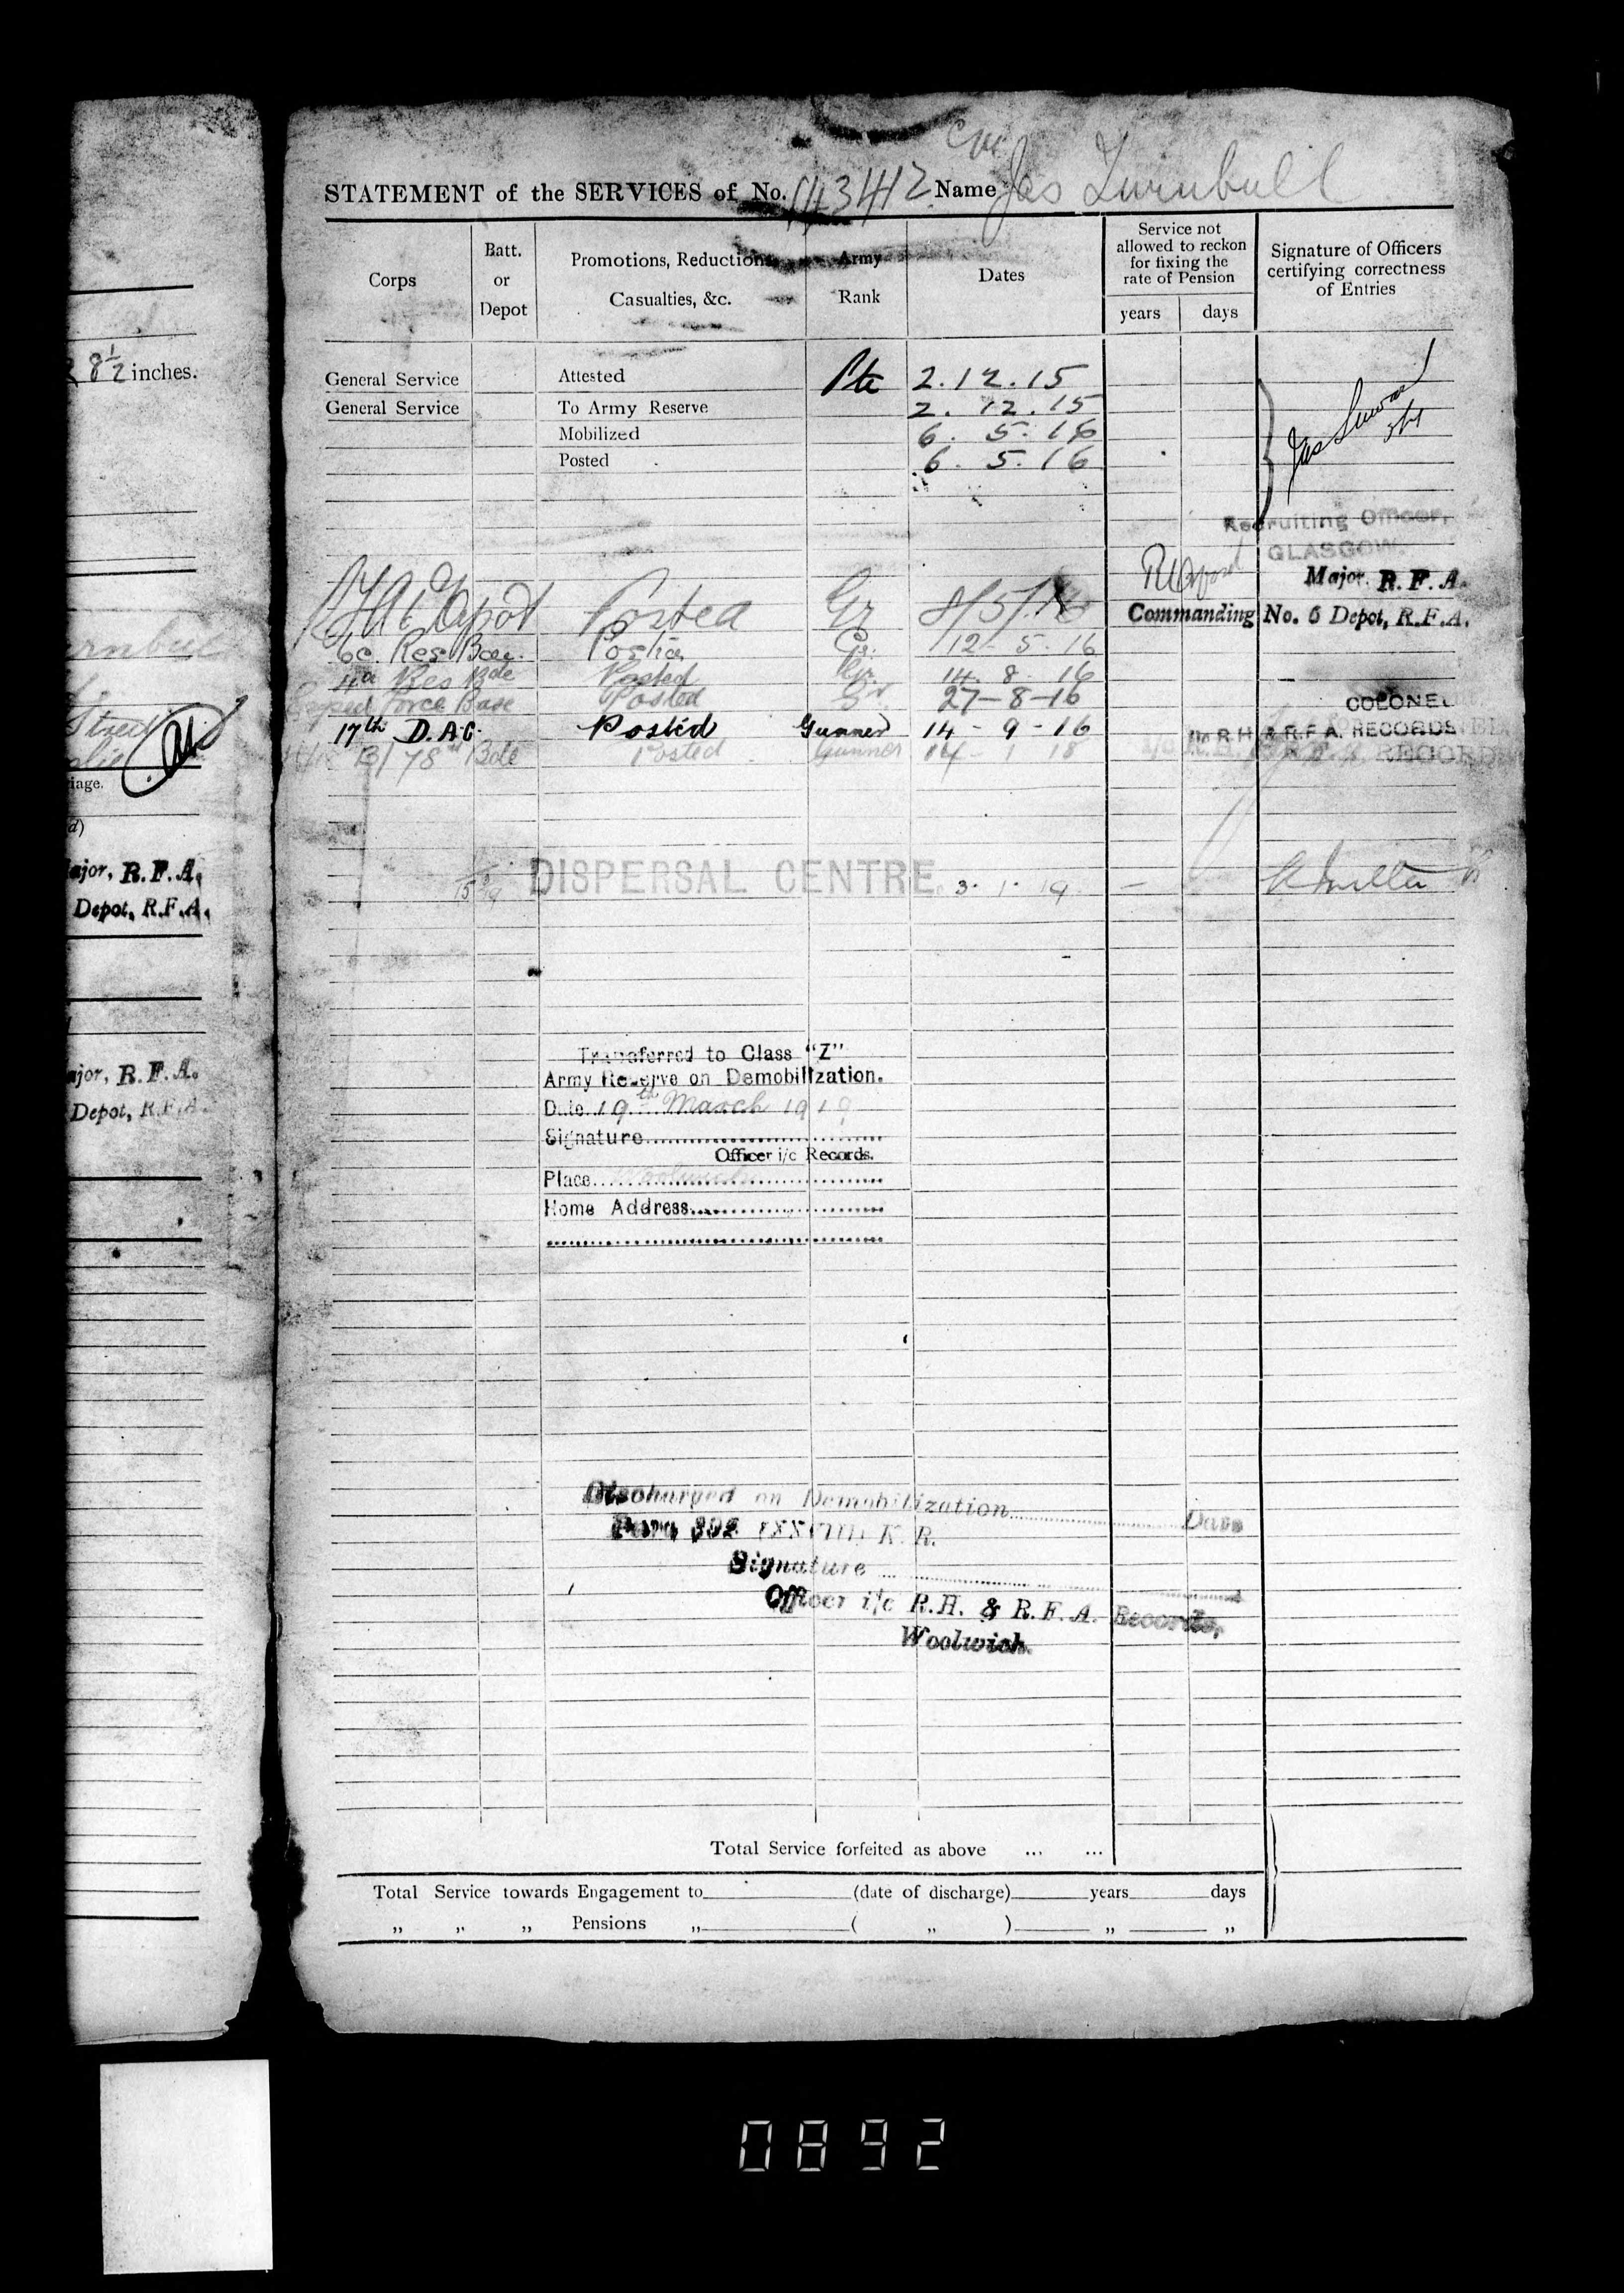 8½ inches.
Street
iage.
d)
ajor, R. F. A.
Depot, R.F.A.
ajor, R. F. A.
Depot, R.F.A.
STATEMENT of the SERVICES of No. 143412 Name Jas Turnbull
Corps
Batt. or Depot
Promotions, Reductions, Casualties, &c.
Army Rank
Dates
Service not allowed to reckon for fixing the rate of Pension
years days
Signature of Officers certifying correctness of Entries
General Service Attested Pte 2.12.15
General Service To Army Reserve 2.12.15
Mobilized 6.5.16
Posted 6.5.16
Recruiting Officer,
GLASGOW.
Major. R. F. A.
Depot Posted Gr 8/5/16
Commanding No. 6 Depot, R.F.A.
Res Posted Gr. 12-5-16
4a Res Bde Posted Gr. 14.8.16
Exped Force Base Posted Gr 27-8-16
COLONEL
17th D.A.C. Posted Gunner 14-9-16
i/c R.H. & R.F.A. RECORDS
B/78 Bde Posted Gunner 14-1-18
RECORDS
DISPERSAL CENTRE 3.1.19 —
Transferred to Class "Z"
Army Reserve on Demobilization.
Date 19th March 1919
Signature
Officer i/c Records.
Place Woolwich
Home Address
Discharged on Demobilization
Para 392 (XXVIII) K. R.
Signature
Officer i/c R.H. & R.F.A. Records,
Woolwich.
Total Service forfeited as above ... ...
Total Service towards Engagement to (date of discharge) years days
„ „ „ Pensions „ ( „ ) „ „
0892